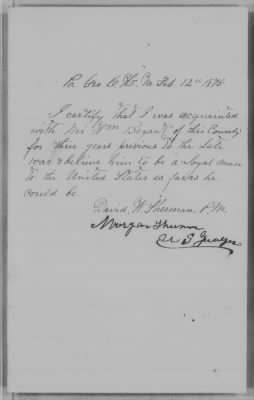 Pr Geo C. H. Va Feb 12th 1875
I certify that I was acquainted
with Mr Wm Bryant of this County
for three years previous to the late
war & believe him to be a loyal man
to the United States as far as he
could be
David W. Sherman P.M.
Morgan
U S